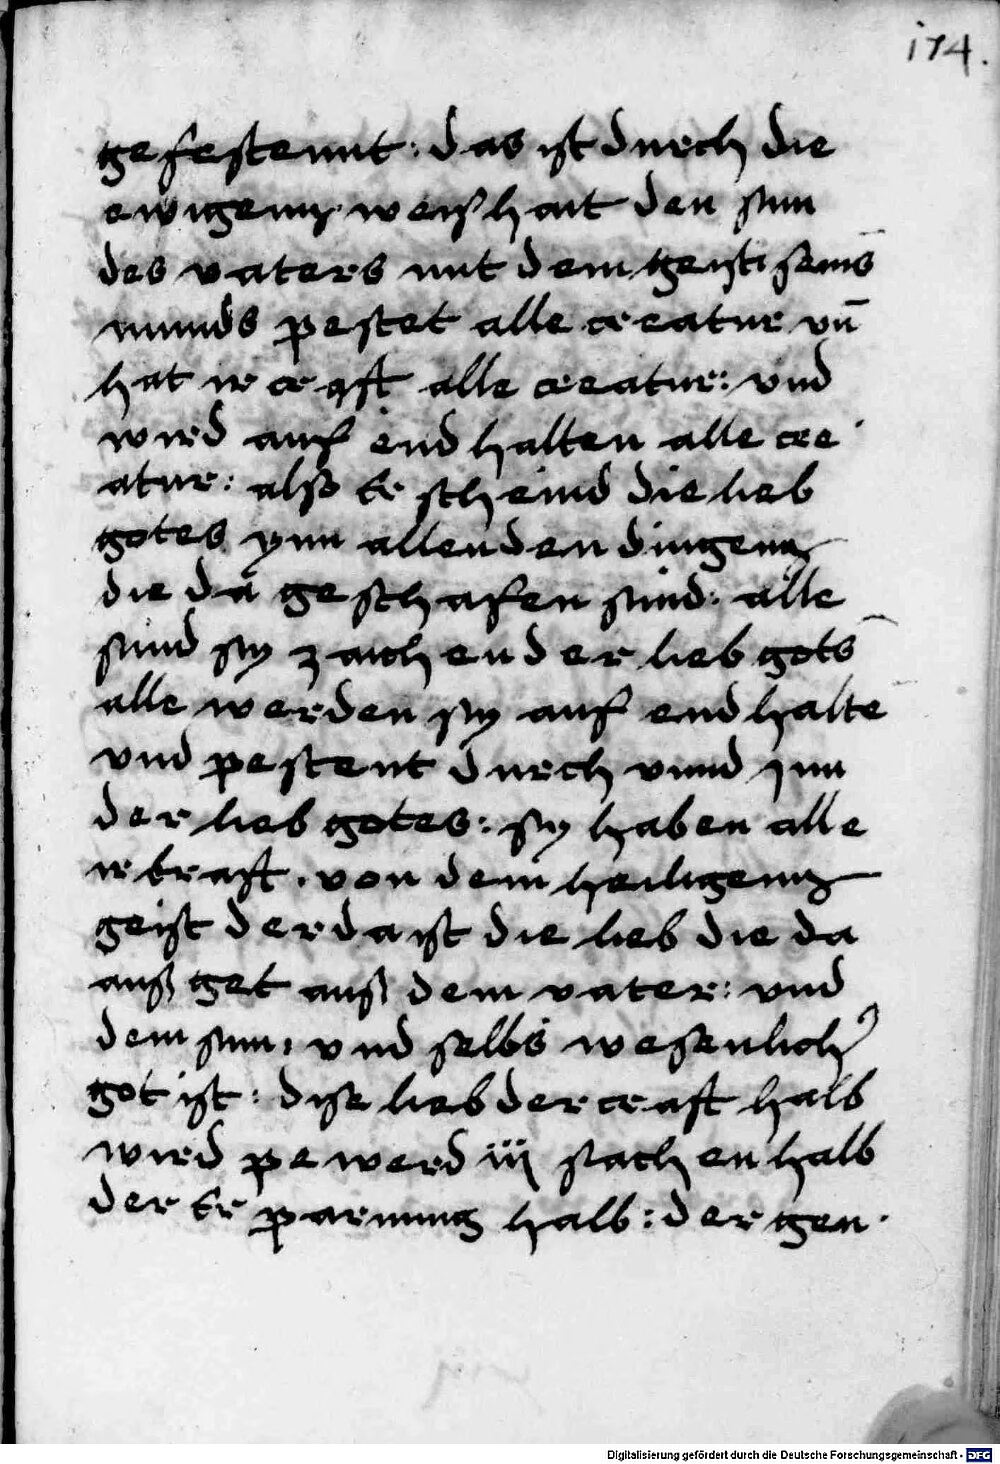 174.
gefestennt : das ist durch die
ewigenn weishait den sun
des vaters mit dem geist seins
munds pestet alle creatur vn̄
hat ir craft alle creatur : vnd
wird auf end halten alle cre
atur : also er scheind die lieb
gotes ynn allen den dingenn
die da geschafen sind : alle
sind sy zaichen der lieb gots
alle werden sy auf end halte
vnd pestent durch vnnd ynn
der lieb gotes : sy haben alle
ir kraft . von dem heiligenn
geist der da ist die lieb die da
auß get auß dem vater : vnd
dem sun , vnd selbs wesenlich
got ist : dise lieb der craft halb
wird pewerd iij sachen halb
der er parmung halb : der gen
Digitalisierung gefördert durch die Deutsche Forschungsgemeinschaft - DFG